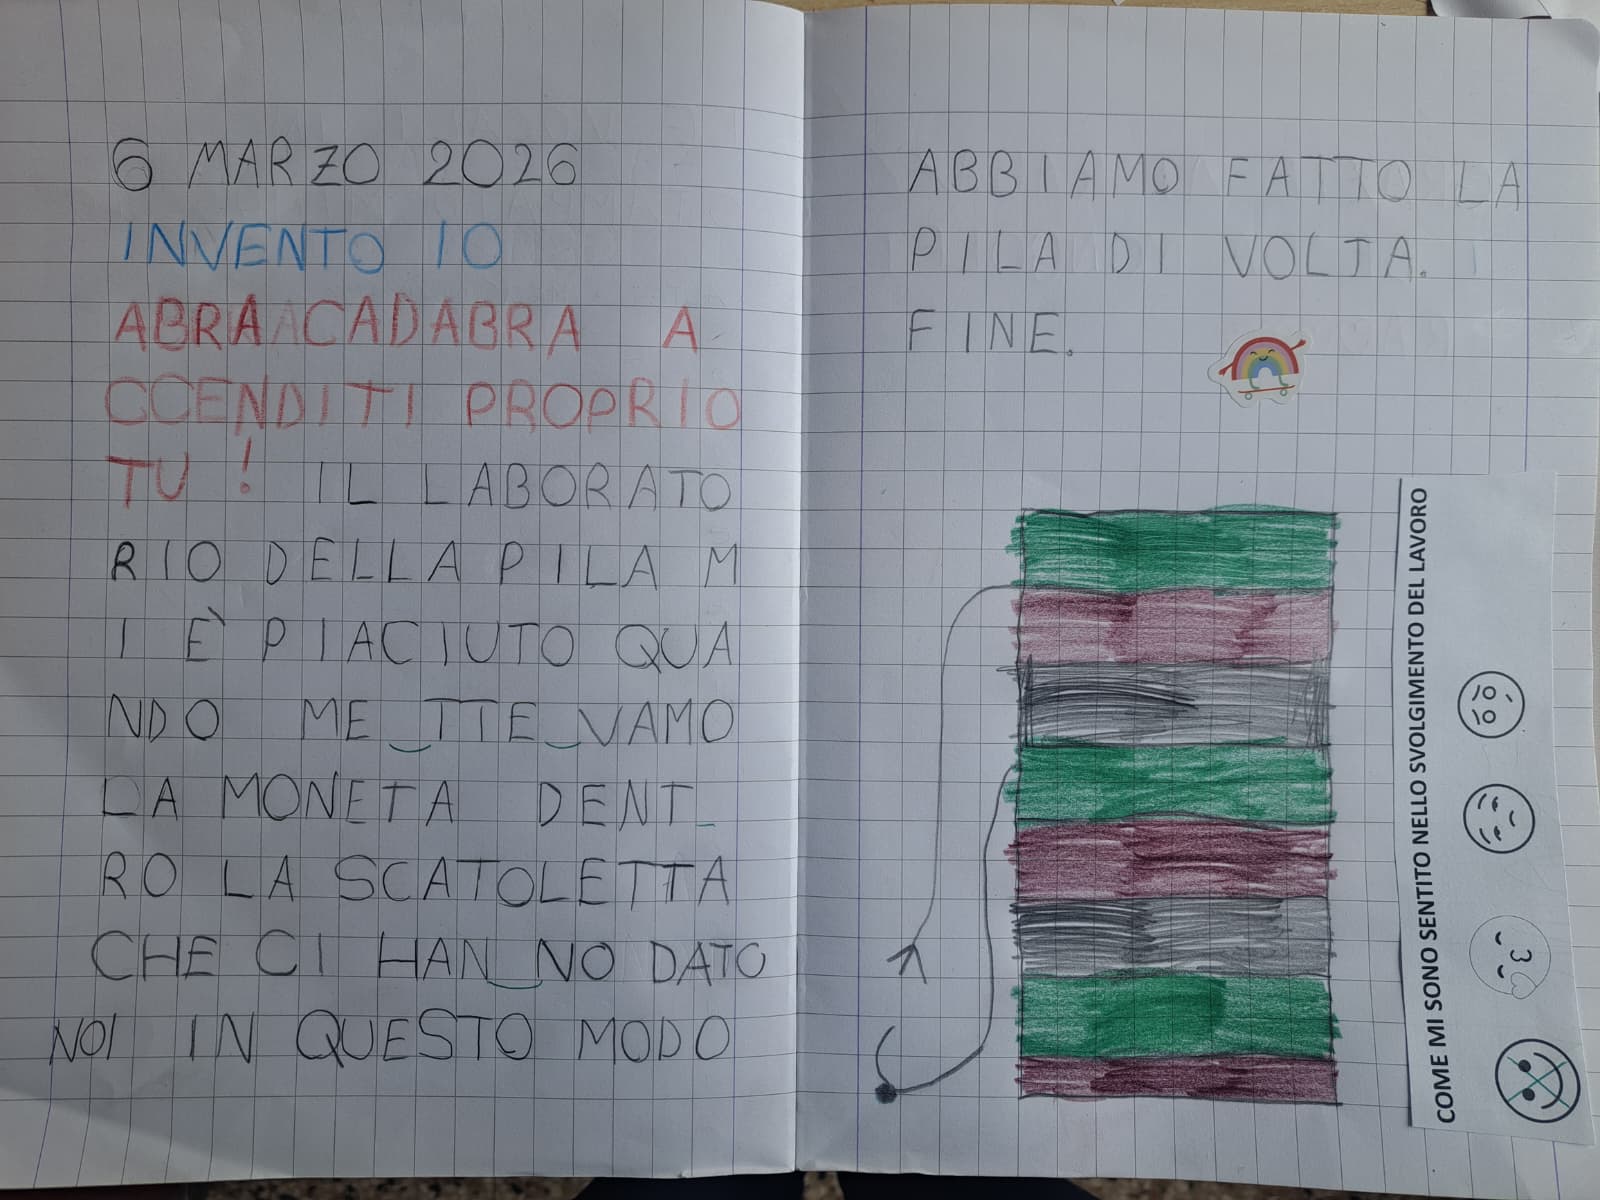 6 MARZO 2026
INVENTO IO
ABRAACADABRA A
CCENDITI PROPRIO
TU! IL LABORATO
RIO DELLA PILA M
I È PIACIUTO QUA
NDO ME_TTE_VAMO
LA MONETA DENT_
RO LA SCATOLETTA
CHE CI HAN_NO DATO
NOI IN QUESTO MODO
ABBIAMO FATTO LA
PILA DI VOLTA.
FINE.
COME MI SONO SENTITO NELLO SVOLGIMENTO DEL LAVORO